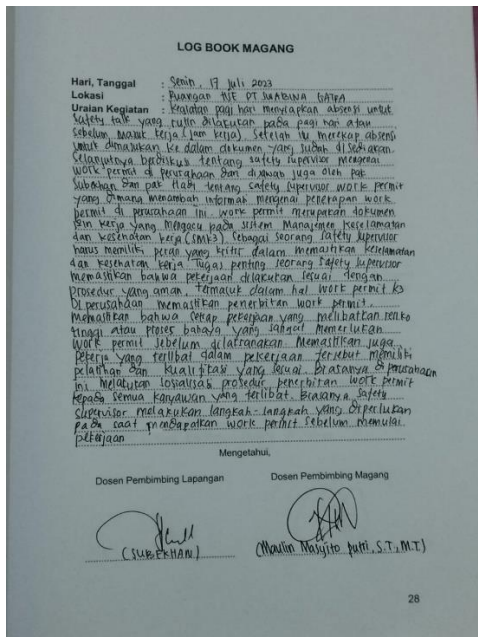 LOG BOOK MAGANG
Hari, Tanggal : Senin, 17 Juli 2023
Lokasi : Ruangan HSE PT SWABINA GATRA
Uraian Kegiatan : Kegiatan pagi hari menyiapkan absensi untuk
safety talk yang rutin dilakukan pada pagi hari atau
sebelum masuk kerja (jam kerja). Setelah itu merekap absensi
untuk dimasukan ke dalam dokumen yang sudah disediakan.
Selanjutnya berdiskusi tentang safety supervisor mengenai
work permit di perusahaan dan dijawab juga oleh pak
Subekhan dan pak Hadi tentang safety supervisor work permit
yang dimana menambah informasi mengenai penerapan work
permit di perusahaan ini. work permit merupakan dokumen
izin kerja yang mengacu pada sistem Manajemen Keselamatan
dan kesehatan kerja (SMK3). Sebagai seorang safety supervisor
harus memiliki peran yang kritis dalam memastikan keselamatan
dan kesehatan kerja. Tugas penting seorang safety supervisor
memastikan bahwa pekerjaan dilakukan sesuai dengan
prosedur yang aman, termasuk dalam hal work permit k3
di perusahaan memastikan penerbitan work permit.
Memastikan bahwa setiap pekerjaan yang melibatkan resiko
tinggi atau proses bahaya yang sangat memerlukan
work permit sebelum dilaksanakan. Memastikan juga
pekerja yang terlibat dalam pekerjaan tersebut memiliki
pelatihan dan kualifikasi yang sesuai. Biasanya di perusahaan
ini melakukan sosialisasi prosedur penerbitan work permit
kepada semua karyawan yang terlibat. Biasanya safety
supervisor melakukan langkah-langkah yang diperlukan
pada saat mendapatkan work permit sebelum memulai
pekerjaan
Mengetahui,
Dosen Pembimbing Lapangan Dosen Pembimbing Magang
(SUBEKHAN) (Maulin Masyito Putri, S.T., M.T.)
28